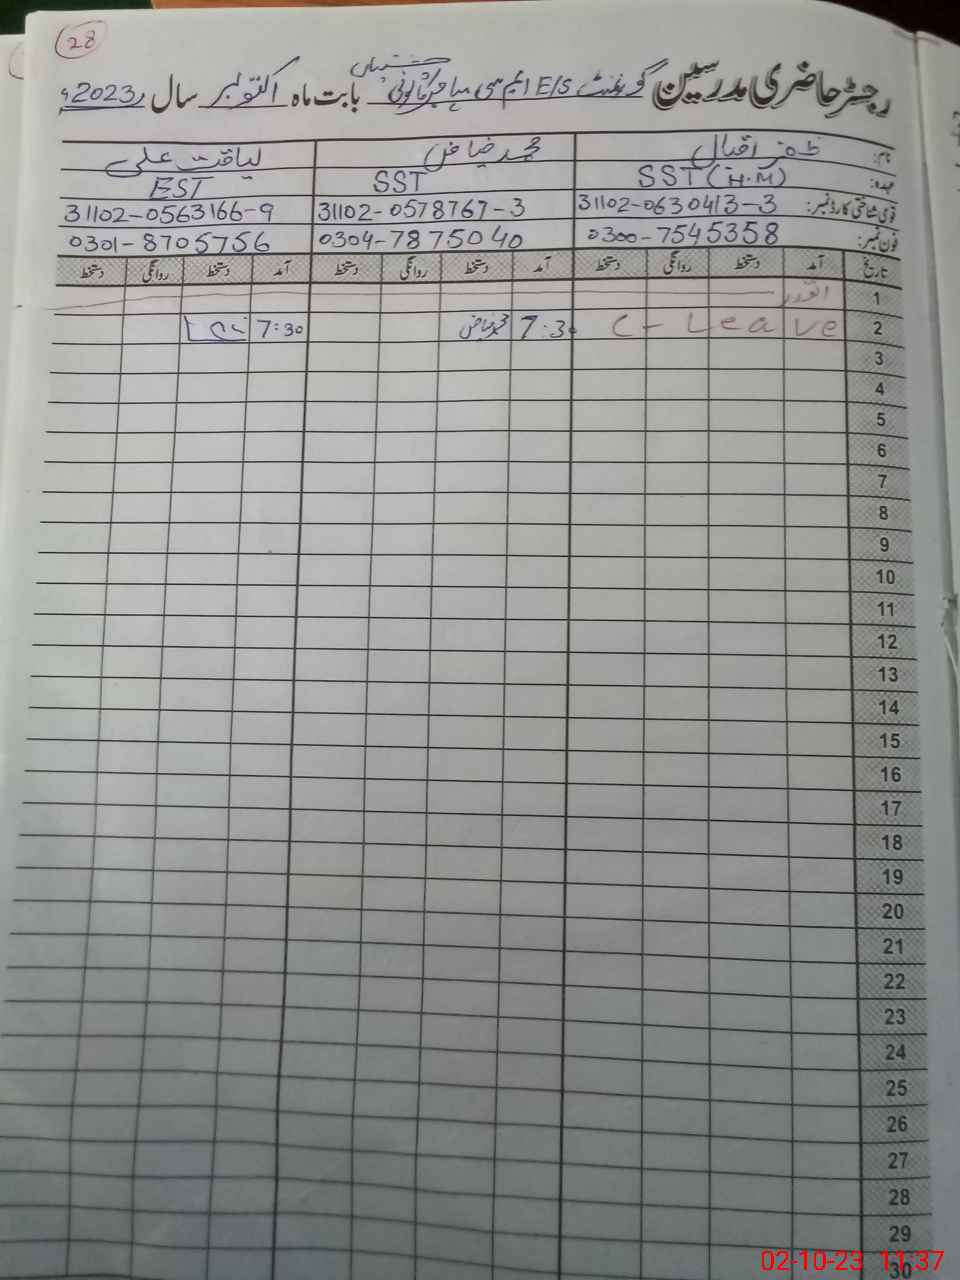 28
رجسٹر حاضری مدرسین گورنمنٹ E/S ایم سی مہاجر کالونی بابت ماہ اکتوبر سال 2023ء
نام: ظفر اقبال محمد ریاض لیاقت علی
عہدہ: SST (H.M) SST EST
قومی شناختی کارڈ نمبر: 31102-0630413-3 31102-0578767-3 31102-0563166-9
فون نمبر: 0300-7545358 0304-7875040 0301-8705756
تاریخ آمد دستخط روانگی دستخط آمد دستخط روانگی دستخط آمد دستخط روانگی دستخط
1 اتوار
2 C-Leave 7:30 محمد ریاض 7:30
3
4
5
6
7
8
9
10
11
12
13
14
15
16
17
18
19
20
21
22
23
24
25
26
27
28
29
30
02-10-23 11:37